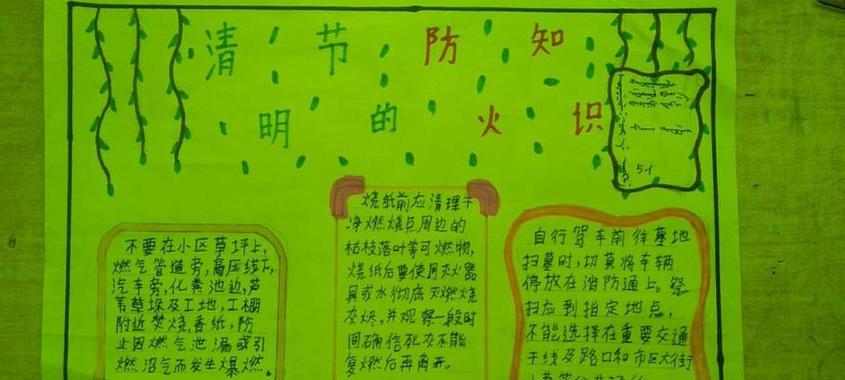 清 节 防 知
明 的 火 识
不要在小区草坪上、
燃气管道旁,高压线下,
汽车旁,化粪池边,芦
苇草垛及工地,工棚
附近焚烧香纸,防
止因燃气泄漏或引
燃沼气而发生爆燃。
烧纸前应清理干
净燃烧区周边的
枯枝落叶等可燃物,
烧纸后要使用灭火器
具或水彻底灭燃烧
灰烬,并观察一段时
间确信死灰不能
复燃后再离开。
自行驾车前往墓地
扫墓时,切莫将车辆
停放在消防通上。祭
扫应到指定地点,
不能选择在重要交通
干线及路口和市区大街